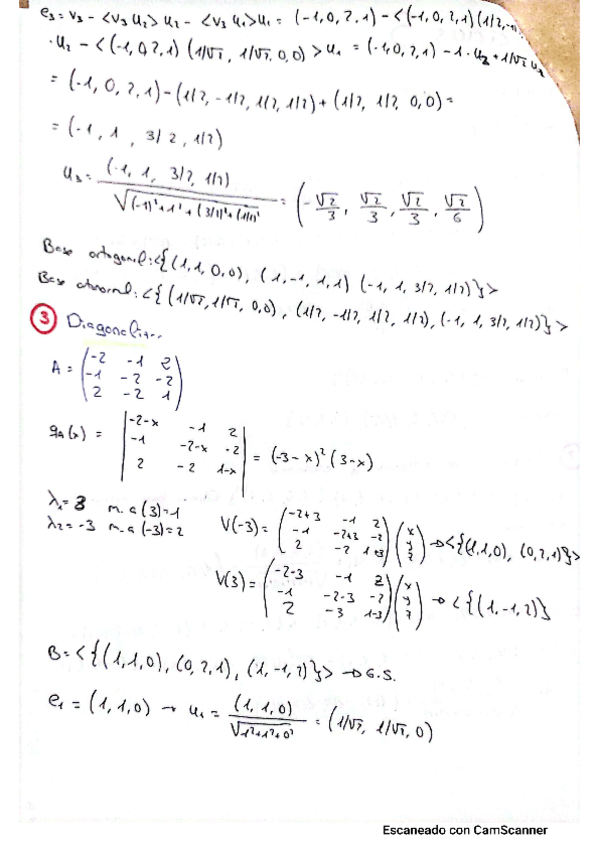 e₃ = v₃ - <v₃ u₂> u₂ - <v₃ u₁> u₁ = (-1, 0, 2, 1) - <(-1, 0, 2, 1) (1/2, -1/
· u₂ - <(-1, 0, 2, 1) (1/√2, 1/√2, 0, 0)> u₁ = (-1, 0, 2, 1) - 1 · u₂ + 1/√2 u₁
= (-1, 0, 2, 1) - (1/2, -1/2, 1/2, 1/2) + (1/2, 1/2, 0, 0) =
= (-1, 1, 3/2, 1/2)
u₃ = (-1, 1, 3/2, 1/2) / √((-1)²+1²+(3/2)²+(1/2)² = (-√2/3, √2/3, √2/3, √2/6)
Base ortogonal: <{(1,1,0,0), (1,-1,1,1) (-1, 1, 3/2, 1/2)}>
Base: <{(1/√2, 1/√2, 0,0), (1/2, -1/2, 1/2, 1/2), (-1, 1, 3/2, 1/2)}>
③ Diagonalizar
A = (-2 -1 2
-1 -2 -2
2 -2 1)
qA(x) = |-2-x -1 2
-1 -2-x -2
2 -2 1-x| = (-3-x)² (3-x)
λ₁ = 3 m.a (3) = 1
λ₂ = -3 m.a (-3) = 2
V(-3) = (-2+3 -1 2
-1 -2+3 -2
2 -2 1+3) (x y z) → <{(1,1,0), (0,2,1)}>
V(3) = (-2-3 -1 2
-1 -2-3 -2
2 -3 1-3) (x y z) → <{(1,-1,2)}
B = <{(1,1,0), (0,2,1), (1,-1,2)}> → G.S.
e₁ = (1,1,0) → u₁ = (1,1,0) / √(1²+1²+0²) = (1/√2, 1/√2, 0)
Escaneado con CamScanner